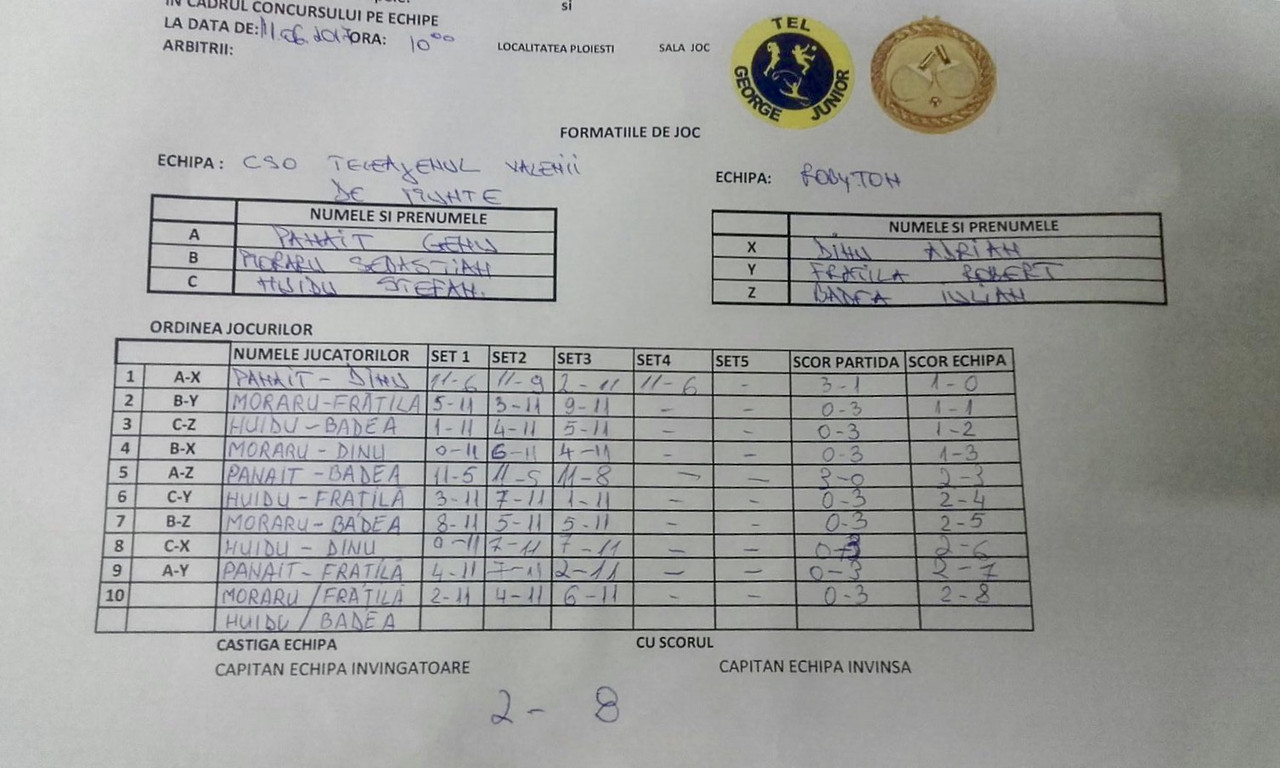 IN CADRUL CONCURSULUI PE ECHIPE
si
LA DATA DE: 11.06.2017 ORA: 10⁰⁰
ARBITRII:
LOCALITATEA PLOIESTI SALA JOC
TEL
GEORGE JUNIOR
FORMATIILE DE JOC
ECHIPA: CSO TELEAJENUL VALENII
DE MUNTE
ECHIPA: ROBYTON
NUMELE SI PRENUMELE
A PANAIT GENU
B MORARU SEBASTIAN
C HUIDU STEFAN.
NUMELE SI PRENUMELE
X DINU ADRIAN
Y FRATILA ROBERT
Z BADEA IULIAN
ORDINEA JOCURILOR
NUMELE JUCATORILOR SET 1 SET2 SET3 SET4 SET5 SCOR PARTIDA SCOR ECHIPA
1 A-X PANAIT - DINU 11-6 11-9 2-11 11-6 - 3-1 1-0
2 B-Y MORARU-FRĂTILA 5-11 3-11 9-11 - - 0-3 1-1
3 C-Z HUIDU-BADEA 1-11 4-11 5-11 - - 0-3 1-2
4 B-X MORARU-DINU 0-11 6-11 4-11 - - 0-3 1-3
5 A-Z PANAIT-BADEA 11-5 11-5 11-8 - - 3-0 2-3
6 C-Y HUIDU-FRATILĂ 3-11 7-11 1-11 - - 0-3 2-4
7 B-Z MORARU-BADEA 8-11 5-11 5-11 - - 0-3 2-5
8 C-X HUIDU - DINU 0-11 7-11 7-11 - - 0-3 2-6
9 A-Y PANAIT-FRATILĂ 4-11 7-11 2-11 - - 0-3 2-7
10 MORARU/FRATILĂ 2-11 4-11 6-11 - - 0-3 2-8
HUIDU/BADEA
CASTIGA ECHIPA CU SCORUL
CAPITAN ECHIPA INVINGATOARE CAPITAN ECHIPA INVINSA
2 - 8